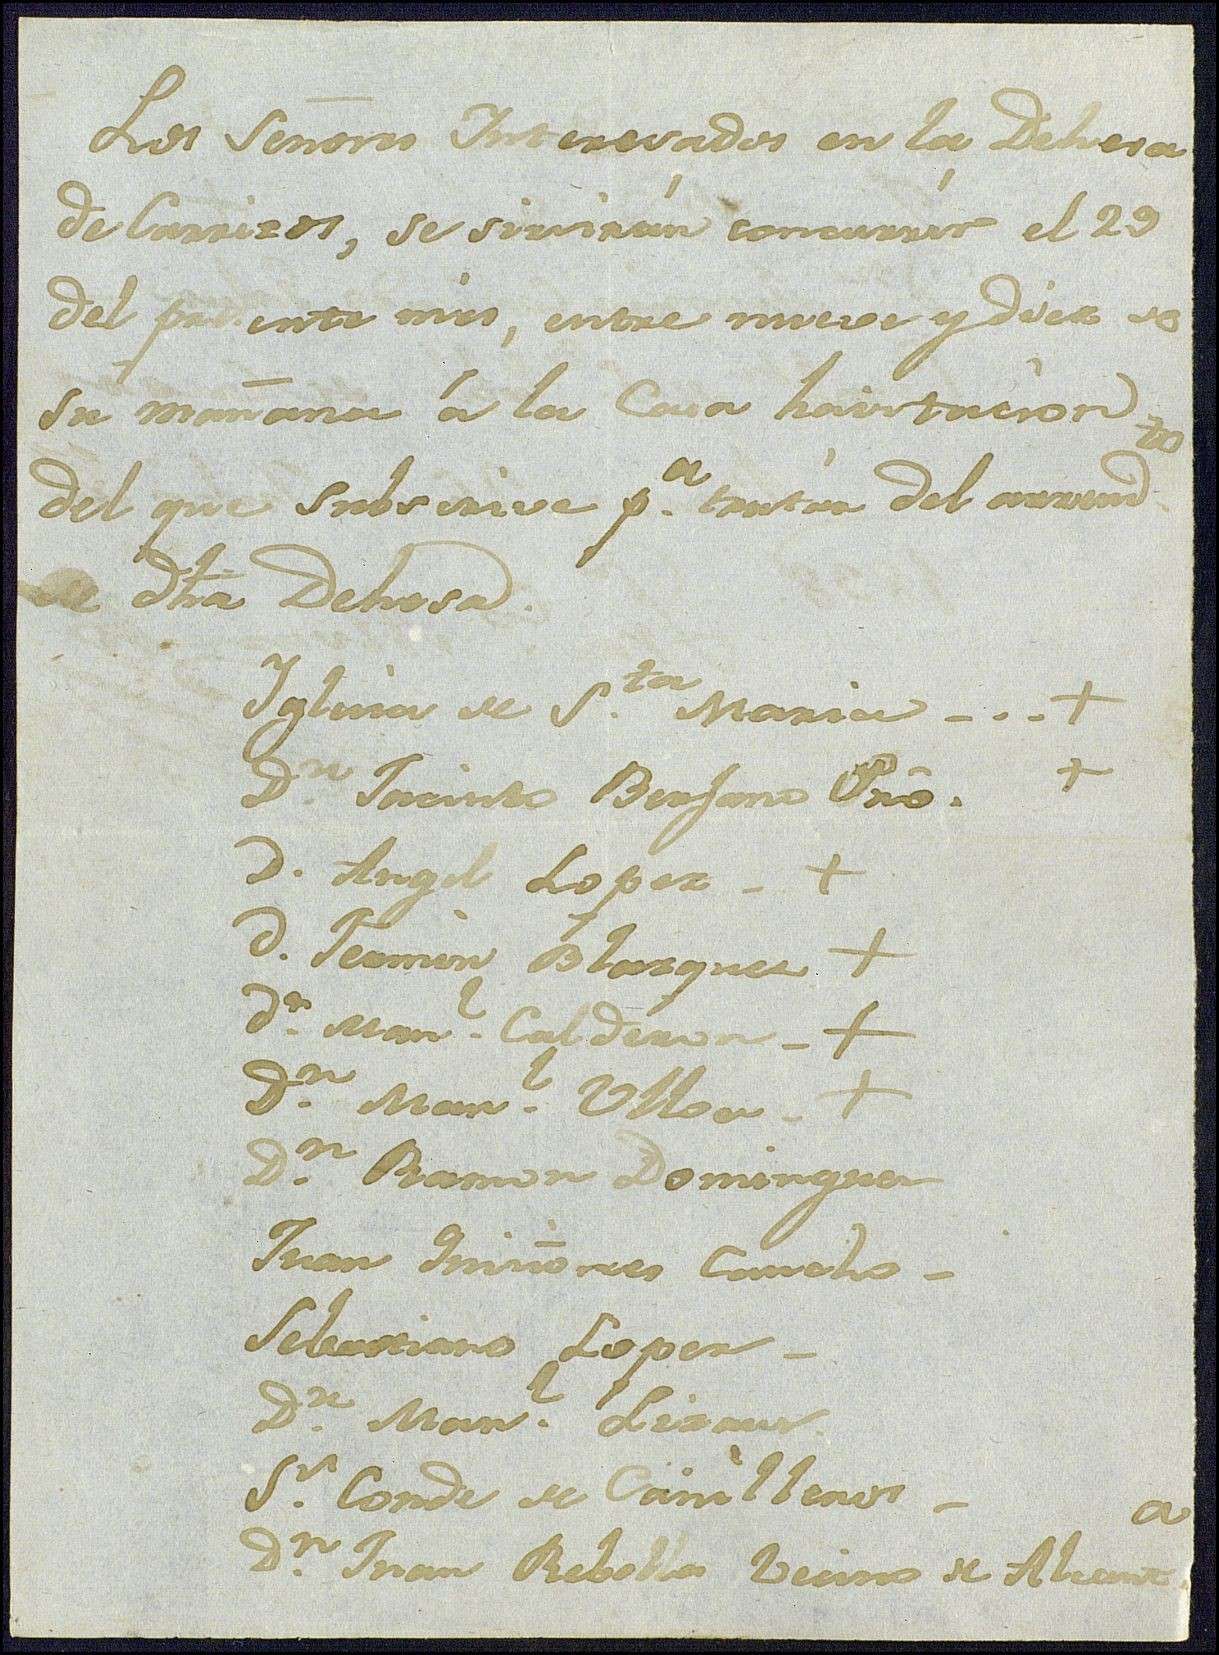 Los Señores Interesados en la Dehesa
de Carrizos, se sirvirán concurrir el 29
del presente mes, entre nueve y diez de
su mañana á la Casa havitacion
del que subscrive p.ª tratár del arrend.to
de dha Dehesa.
Iglesia de S.ta Maria - . . - +
Dn Jacinto Berjano Prô. +
D. Angel Lopez - +
D. Fermin Blazquez +
Dn. Man.l Calderon - +
D.n Man.l Ulloa - +
D.n Ramon Dominguez
Juan Quiñones Caucho -
Sebastiano Lopez -
D.n Man.l Lizaur.
S.r Conde de Canilleros -
D.n Juan Rebollo Vecino de Alcant.a